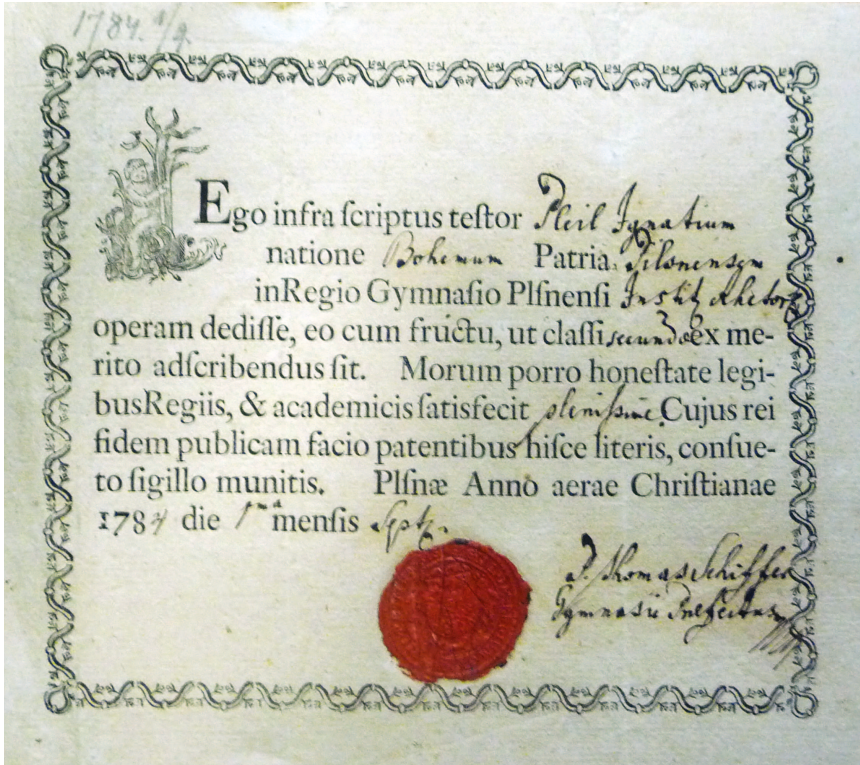 1784. 1/9.
Ego infra ſcriptus teſtor Pleil Ignatium
natione Bohemum Patria Pilsnensem
inRegio Gymnaſio Plſnenſi Instit Rhetor
operam dediſſe, eo cum fructu, ut claſſi secundo ex me-
rito adſcribendus ſit. Morum porro honeſtate legi-
busRegiis, & academicis ſatisfecit plenissime. Cujus rei
fidem publicam facio patentibus hiſce literis, conſue-
to ſigillo munitis. Plſnæ Anno aerae Chriſtianae
1784 die 1ma menſis Sept.
P. Thomas Schiffer
Gymnasii Praefectus